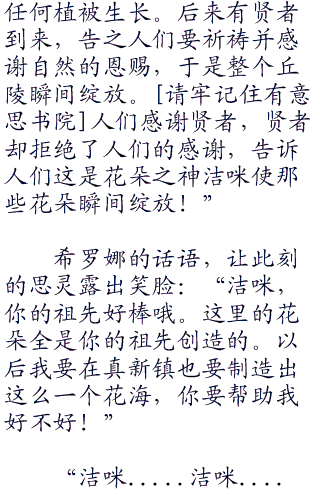 任何植被生长。后来有贤者
到来，告之人们要祈祷并感
谢自然的恩赐，于是整个丘
陵瞬间绽放。[请牢记住有意
思书院]人们感谢贤者，贤者
却拒绝了人们的感谢，告诉
人们这是花朵之神洁咪使那
些花朵瞬间绽放！”
希罗娜的话语，让此刻
的思灵露出笑脸：“洁咪，
你的祖先好棒哦。这里的花
朵全是你的祖先创造的。以
后我要在真新镇也要制造出
这么一个花海，你要帮助我
好不好！”
“洁咪.....洁咪....